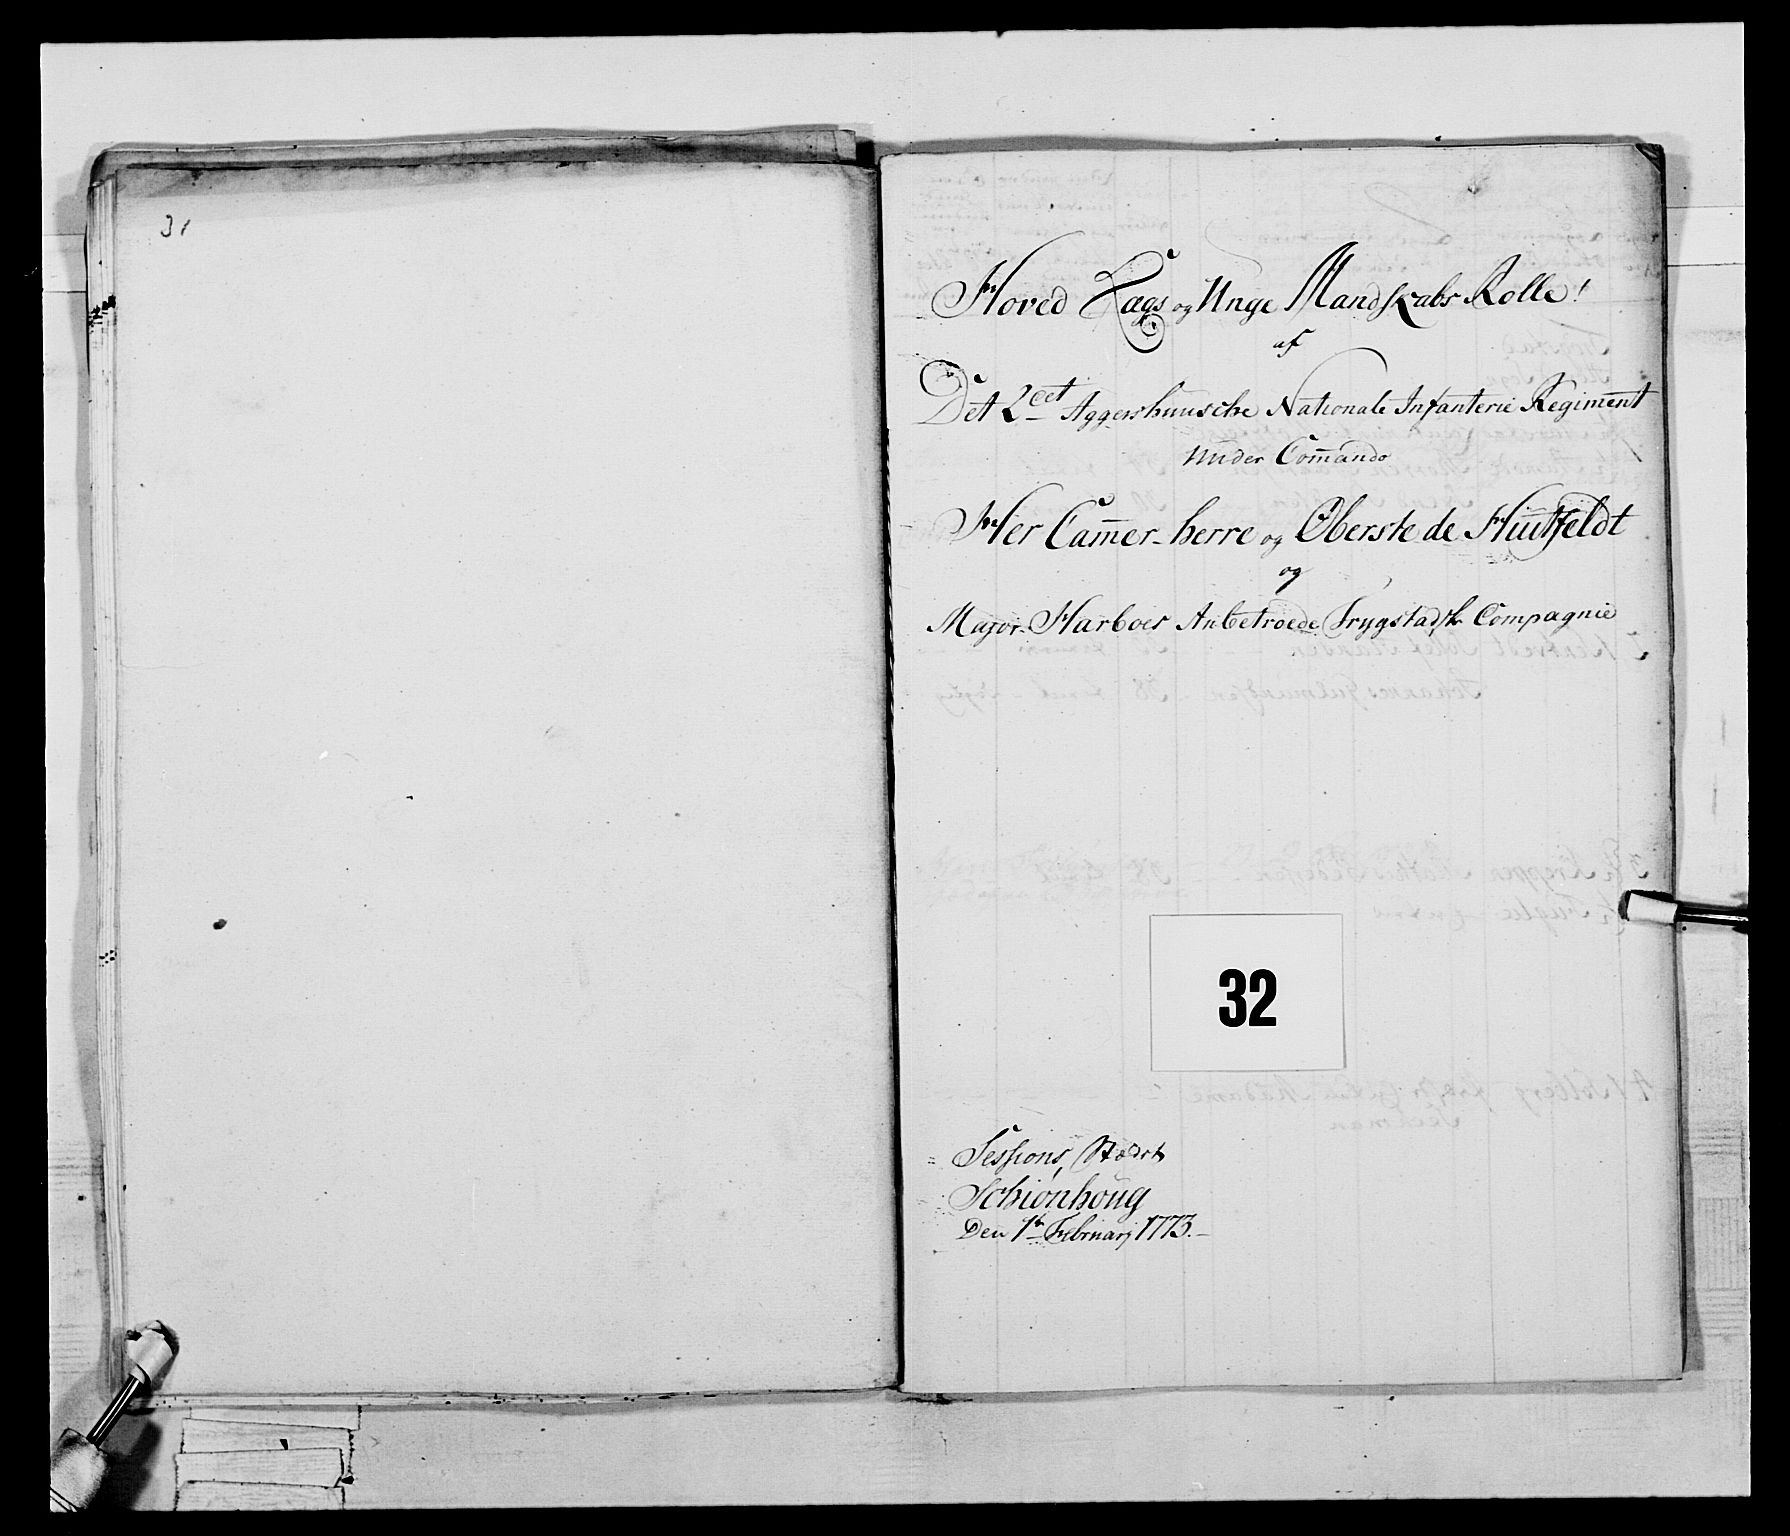 31
Hoved Lægs og Unge Mandskabs Rolle!
af
Det 2det Aggershuusche Nationale Infanterie Regiment
under Com̄ando
Her Cam̄er-herre og Oberste de Huitfeldt
og
Major Harboes Anbetroede Trygstadsk Compagnie
32
Sessions Stædet
Schiønhoug
Den 1te Februarj 1773.